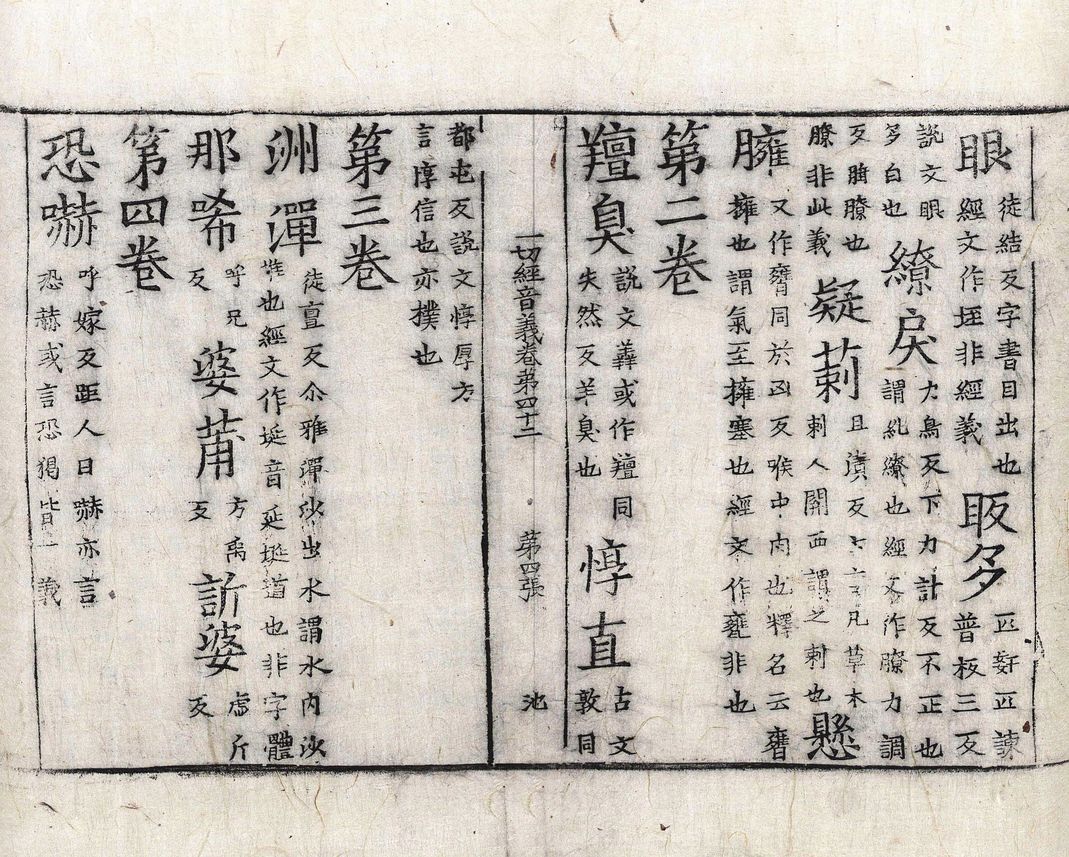 眼徒結反字書目出也經文作垤非經義眅多匹姧匹諫普板三反
說文眼多白也繚戾力鳥反下力計反不正也謂糺繚也經文作膫力調
反脂膫也膫非此義疑莿且漬反方言凡草木刺人關西謂之刺也懸
臃又作癰同於凶反喉中肉也釋名云癰擁也謂氣至擁塞也經文作甕非也
第二卷
羶臭說文羴或作羶同失然反羊臭也惇直古文敦同
一切經音義卷第四十二 第四張 池
都屯反說文惇厚方言惇信也亦撲也
第三卷
洲潬徒亶反尒雅潬沙出水謂水內沙堆也經文作埏音延埏道也非字體
那唏呼兄反婆莆方禹反訢婆虛斤反
第四卷
恐嚇呼嫁反距人曰嚇亦言恐赫或言恐猲皆一義